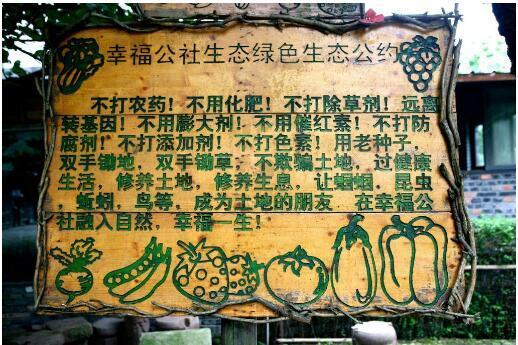 幸福公社生态绿色生态公约
不打农药！不用化肥！不打除草剂！远离
转基因！不用膨大剂！不用催红素！不打防
腐剂！不打添加剂！不打色素！用老种子，
双手锄地，双手锄草，不欺骗土地，过健康
生活，修养土地，修养生息，让蝈蝈．昆虫
，蚯蚓，鸟等，成为土地的朋友 在幸福公
社融入自然，幸福一生！